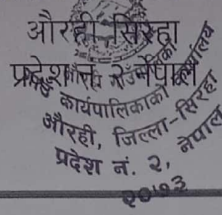 औरही सिरहा
प्रदेश नं २ नेपाल
कार्यपालिकाको कार्यालय
औरही, जिल्ला-सिरहा
प्रदेश नं. २, नेपाल
२०७३